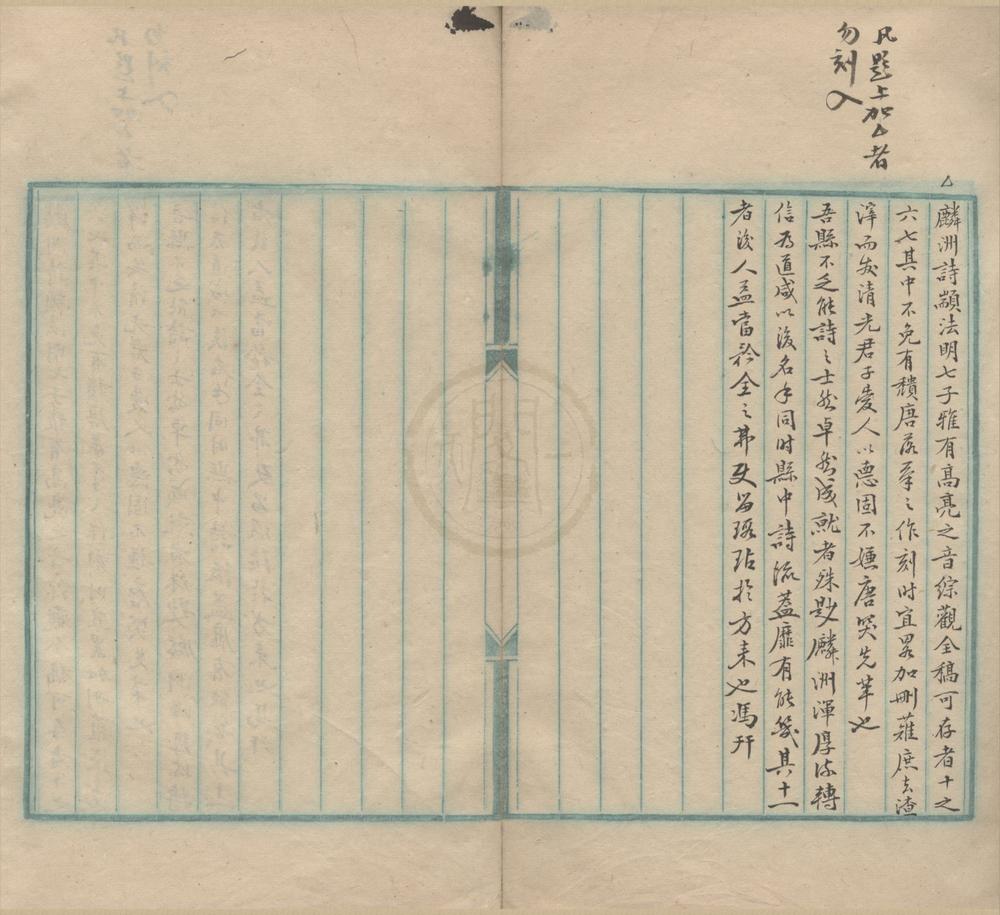 凡題上加△者
勿刻入
△
麟洲詩顓法明七子雅有高亮之音綜觀全稿可存者十之
六七其中不免有穨唐落莩〻作刻时宜畧加刪薙庶去渣
滓而发清光君子愛人以德固不嫌唐哭先軰也
吾縣不乏能詩〻士然卓然成就者殊尠麟洲渾厚流轉
信为道咸以後名手同时縣中詩流蓋靡有能幾其十一
者後人益當矜全之弗更留瑕玷於方来也馮幵